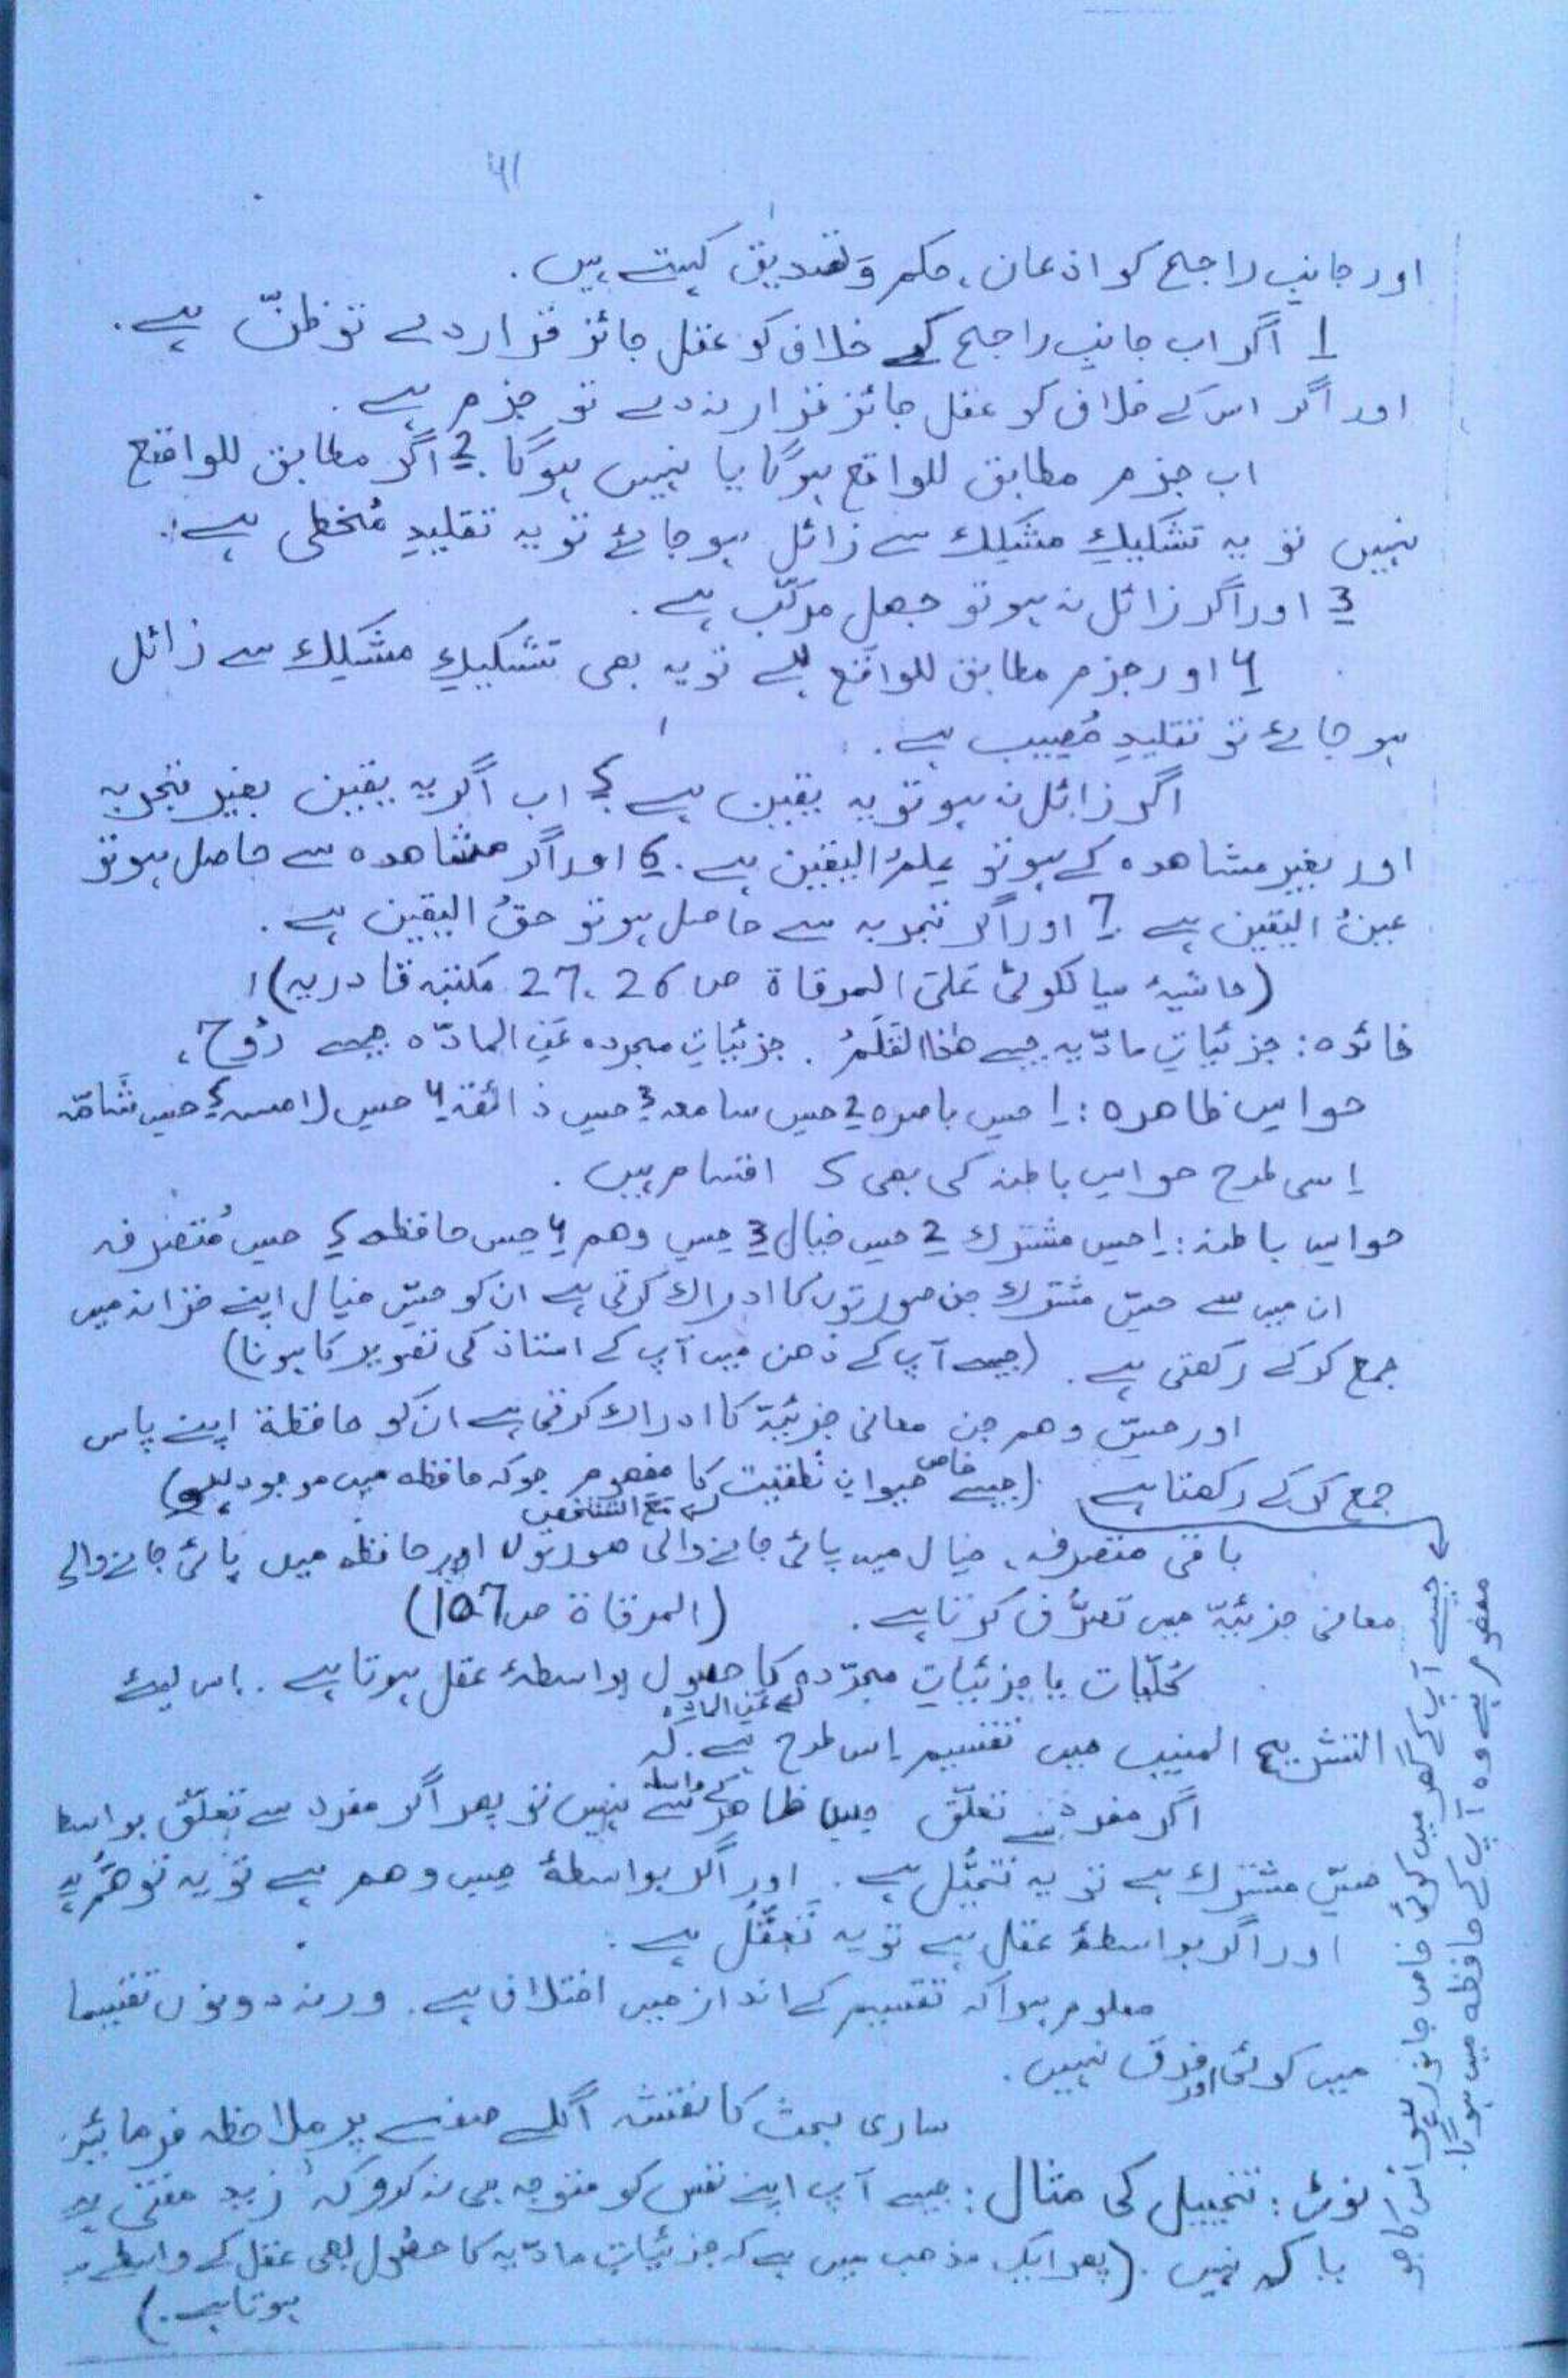 41
اور جانبِ راجح کو اذعان، حکم و تصدیق کہتے ہیں.
1 اگر اب جانبِ راجح کے خلاف کو عقل جائز قرار دے تو ظنّ ہے.
اور اگر اس کے خلاف کو عقل جائز قرار نہ دے تو جزم ہے.
اب جزم مطابق للواقع ہوگا یا نہیں ہوگا. 2 اگر مطابق للواقع
نہیں تو یہ تشکیکِ مشکک سے زائل ہو جائے تو یہ تقلیدِ مُخطی ہے.
3 اور اگر زائل نہ ہو تو جھل مرکّب ہے.
4 اور جزم مطابق للواقع ہے تو یہ بھی تشکیکِ مشکک سے زائل
ہو جائے تو تقلیدِ مُصیب ہے.
اگر زائل نہ ہو تو یہ یقین ہے 5 اب اگر یہ یقین بغیر تجربہ
اور بغیر مشاھدہ کے ہو تو علمُ الیقین ہے. 6 اور اگر مشاھدہ سے حاصل ہو تو
عینُ الیقین ہے 7 اور اگر تجربہ سے حاصل ہو تو حقُ الیقین ہے.
(حاشیۂ سیالکوٹی عَلَی المرقاة ص 26، 27 مکتبہ قادریہ)
فائدہ: جزئیاتِ مادّیہ جیسے ھٰذا القَلَمُ. جزئیاتِ مجردہ عَنِ المادّہ جیسے رُوح،
حواسِ ظاھرہ: 1 حسِ باصرہ 2 حسِ سامعہ 3 حسِ ذائقہ 4 حسِ لامسہ 5 حسِ شَامّہ
اِسی طرح حواسِ باطنہ کی بھی 5 اقسام ہیں.
حواسِ باطنہ: 1 حسِ مشترک 2 حسِ خیال 3 حسِ وھم 4 حسِ حافظہ 5 حسِ مُتصرفہ
ان میں سے حسِّ مشترک جن صورتوں کا ادراک کرتی ہے ان کو حسِّ خیال اپنے خزانہ میں
جمع کرکے رکھتی ہے. (جیسے آپ کے ذھن میں آپ کے استاذ کی تصویر کا ہونا)
اور حسِّ وھم جن معانی جزئیّۃ کا ادراک کرتی ہے ان کو حافظۃ اپنے پاس
جمع کرکے رکھتا ہے. (جیسے خاص حیوان نُطقیت کا مفھوم جو کہ حافظہ میں موجود ہے)
مَعَ التشخص
باقی متصرفہ، خیال میں پائی جانے والی صورتوں اور حافظہ میں پائی جانے والے
معانی جزئیّہ میں تصرُّف کرتا ہے. (المرقاة ص 107)
کُلّیات یا جزئیاتِ مجرّدہ کا حصول بواسطۂ عقل ہوتا ہے. اِس لیئے
عَنِ المادّہ
التشریح المنیب میں تقسیم اِس طرح ہے. کہ
اگر مفرد سے تعلّق حسِ ظاھر کے واسطہ سے نہیں تو پھر اگر مفرد سے تعلّق بواسطہ
حسِّ مشترک ہے تو یہ تخیُّل ہے. اور اگر بواسطۂ حسِ وھم ہے تو یہ توھُّم ہے
اور اگر بواسطۂ عقل ہے تو یہ تَعَقُّل ہے.
معلوم ہوا کہ تقسیم کے انداز میں اختلاف ہے. ورنہ دونوں تقسیما
میں کوئی اور فرق نہیں.
ساری بحث کا نقشہ اگلے صفحے پر ملاحظہ فرمائیں
نوٹ: تخییل کی مثال: جیسے آپ اپنے نفس کو متوجہ ہی نہ کرو کہ زید مفتی ہے
یا کہ نہیں. (پھر ایک مذھب میں ہے کہ جزئیاتِ مادّیہ کا حصُول بھی عقل کے واسطے سے
ہوتا ہے.)
جیسے آپ کے گھر میں کوئی خاص جانور ہو اس کا جو
مفھوم ہے وہ آپ کے حافظہ میں ہوگا.